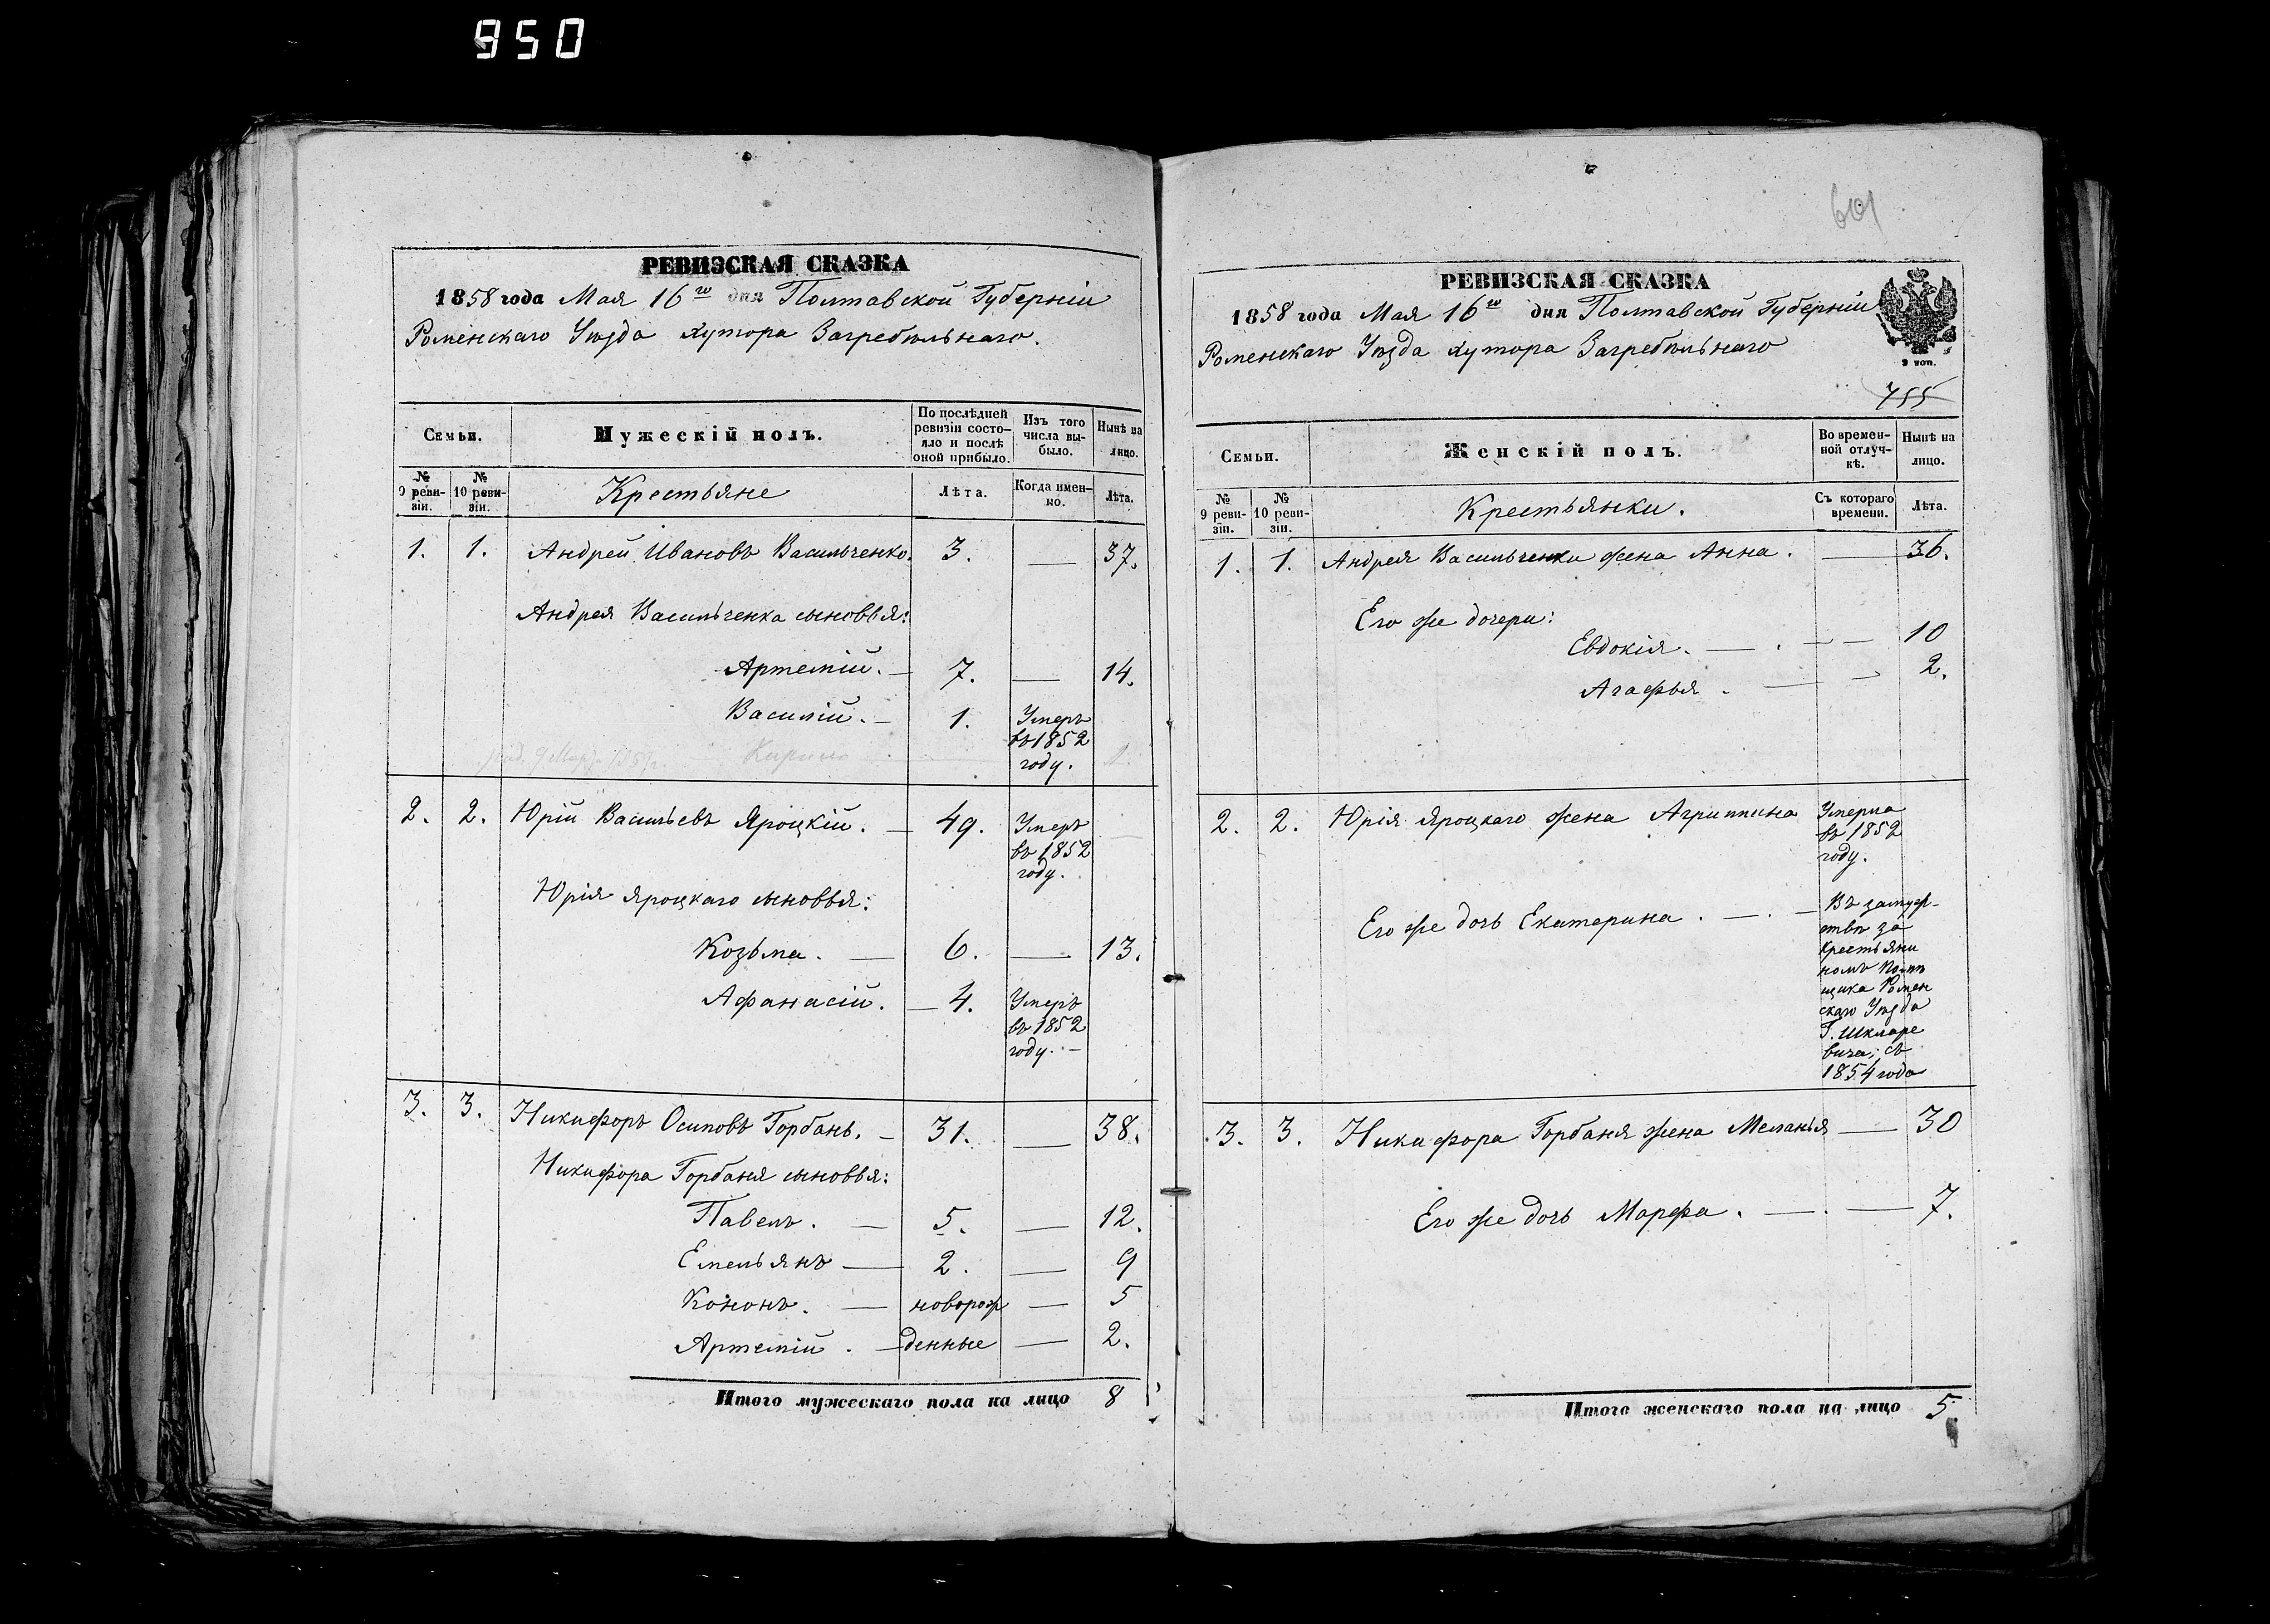 950
РЕВИЗСКАЯ СКАЗКА
1858 года Мая 16го дня Полтавской Губерніи
Роменскаго Уѣзда хутора Загребѣльнаго.
Семьи.
Мужескій полъ.
По послѣдней ревизіи состояло и послѣ оной прибыло.
Изъ того числа выбыло.
Нынѣ на лицо.
№ 9 ревизіи.
№ 10 ревизіи.
Крестьяне
Лѣта.
Когда именно.
Лѣта.
1. 1. Андрей Ивановъ Васильченко. 3. — 37.
Андрея Васильченка сыновья:
Артемій. — 7. — 14.
Василій. — 1. Умеръ въ 1852 году.
2. 2. Юрій Васильевъ Яроцкій. — 49. Умеръ въ 1852 году.
Юрія Яроцкаго сыновья:
Козьма. — 6. — 13.
Афанасій. — 4. Умеръ въ 1852 году. —
3. 3. Никифоръ Осиповъ Горбань. — 31. — 38.
Никифора Горбаня сыновья:
Павелъ. — 5. — 12.
Емельянъ — 2. — 9
Кононъ. — новорож — 5
Артемій. — денные — 2.
Итого мужескаго пола на лицо 8
601
РЕВИЗСКАЯ СКАЗКА
1858 года Мая 16го дня Полтавской Губерніи
Роменскаго Уѣзда хутора Загребѣльнаго
755
Семьи.
Женскій полъ.
Во временной отлучкѣ.
Нынѣ на лицо.
№ 9 ревизіи.
№ 10 ревизіи.
Крестьянки.
Съ котораго времени.
Лѣта.
1. 1. Андрея Васильченки жена Анна. — 36.
Его же дочери:
Евдокія. — — 10
Агафья. — — 2.
2. 2. Юрія Яроцкаго жена Агриппина Умерла въ 1852 году.
Его же дочь Екатерина. — —
Въ замуж-
ствѣ за
крестьяни
номъ Помѣ
щика Ромен
скаго Уѣзда
Г. Шкляре
вича, съ
1854 года
3. 3. Никифора Горбаня жена Меланья — 30
Его же дочь Марфа. — — 7.
Итого женскаго пола на лицо 5